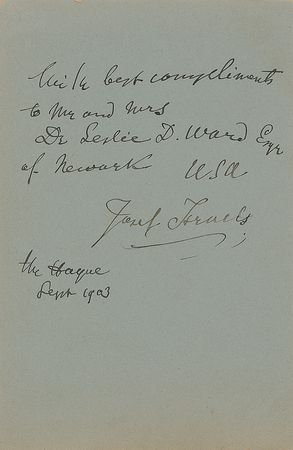 With best compliments
to Mr and Mrs
Dr Leslie D. Ward Esqr
of Newark USA
Jozef Israels
the Hague
Sept 1903